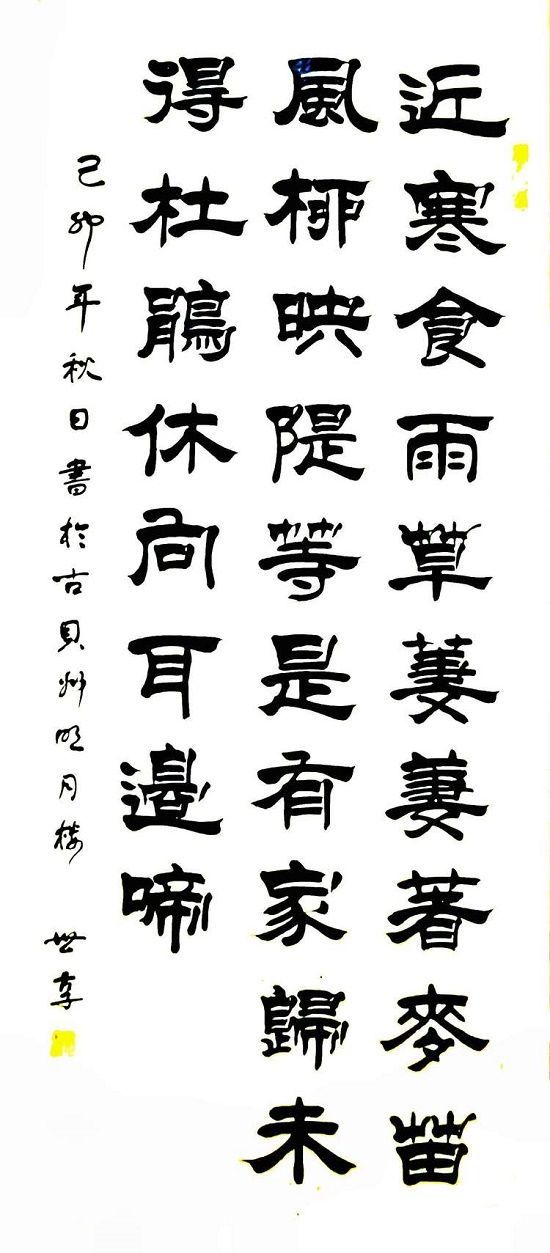 近寒食雨草萋萋著麥苗
風柳映隄等是有家歸未
得杜鵑休向耳邊啼
己卯年秋日書於古貝州明月楼 世享